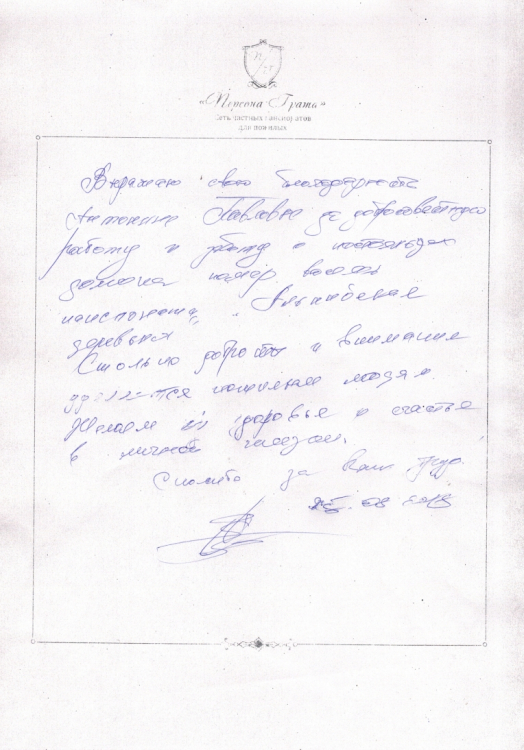 «Персона Грата»
Сеть частных пансионатов
для пожилых
Выражаю свою благодарность
Антонине Павловне за добросовестную
работу и заботу о постояльцах
домика номер восемь
пансионата
деревня
Столько доброты и внимания
уделяется пожилым людям
Желаем ей здоровья и счастья
в личной жизни.
Спасибо за Ваш труд.
25. 08 2018